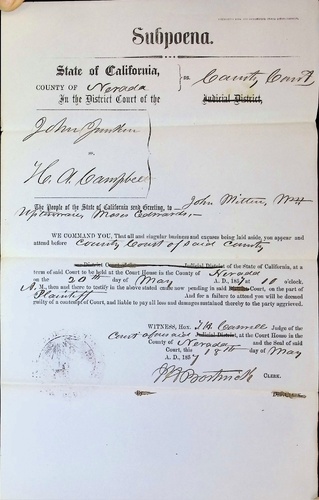 Subpoena.
State of California, ss. County Court
COUNTY OF Nevada
In the District Court of the Judicial District,
John
vs.
H. A. Campbell
The People of the State of California send Greeting, to John Miller, W H
Moses Edwards,
WE COMMAND YOU, That all and singular business and excuses being laid aside, you and
attend before County Court of said County
District Court of the Judicial District of the State of California, at a
term of said Court to be held at the Court House in the County of Nevada
on the 20th day of May A. D., 1857 at 10 o'clock.
A. M., then and there to testify in the above stated cause now pending in said Court, on the part of
Plaintiff And for a failure to attend you will be deemed
guilty of a contempt of Court, and liable to pay all loss and damages sustained thereby to the party aggrieved.
WITNESS, Hon. Judge of the
Court aforesaid Judicial District, at the Court House in the
County of Nevada and the Seal of said
Court, this 18th day of May
A. D., 1857
Bostwick CLERK.